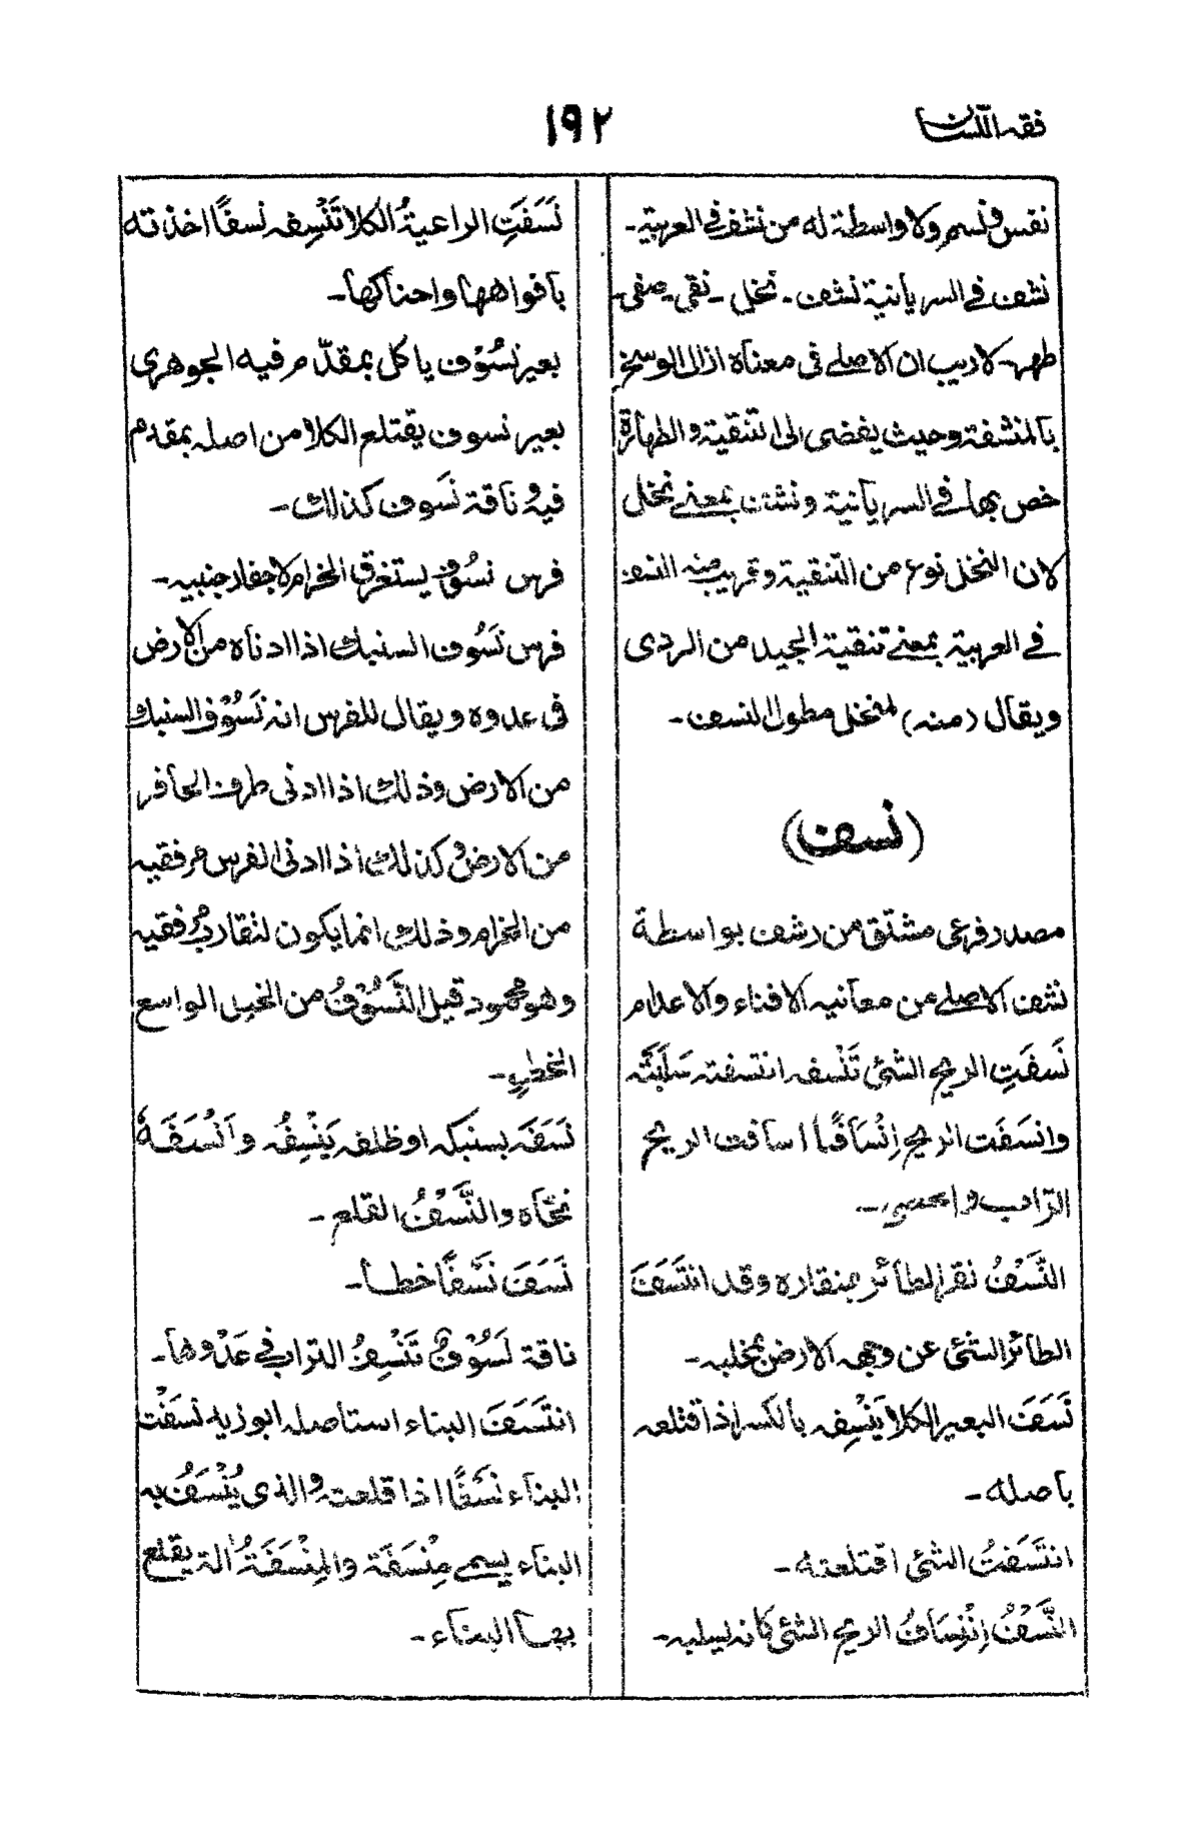 فقه اللسان
١٩٢
نقس فلسم ولا واسطة له من نشف في العربية ـ
نشف في السريانية نشف ـ نخل ـ نقى ـ صفى ـ
طهر ـ لا ريب ان الاصلي في معناه ازال الوسخ
بالمنشفة وحيث يفضى الى التنقية والطهارة
خص بها في السريانية ونشف بمعنى نخل
لان النخل نوع من التنقية وقريب منه النسف
في العربية بمعنى تنقية الجيد من الردى
ويقال (منه) لمنخل مطول النسف ـ
(نسف)
مصدر فرعى مشتق من رشف بواسطة
نشف الاصلي من معانيه الافناء والاعدام
نَسَفَتِ الريح الشئ تَنْسِفه انتسفته سَلَبَتْه
وانسَفَت الريح اِنْسَافًا اسافت الريح
التراب و
النَّسْفُ نقر الطائر بمنقاره وقد انتَسَفَ
الطائر الشئ عن وجه الارض بمخلبه ـ
نَسَفَ البعير الكلا يَنْسِفه بالكسر اذا قتلعه
باصله ـ
انتَسَفتُ الشئ اقتلعته ـ
النَّسْفُ اِنْتِسَافُ الريح الشئ كانه يسلبه ـ
نَسَفَتِ الراعيةُ الكلا تَنْسِفه نسفًا اخذته
بافواهها واحناكها ـ
بعير نسُوْف ياكل بمقدّم فيه الجوهرى
بعير نسوف يقتلع الكلا من اصله بمقدم
فيهِ و ناقة نَسوف كذلك ـ
فرس نسُوف يستغرق الحزام لاجفار جنبيه ـ
فرس نَسُوف السنبك اذا ادناه من الارض
فى عدوه ويقال للفرس انه نَسُوْف السنبك
من الارض وذلك اذا ادنى طرف الحافر
من الارض و كذلك اذا ادنى الفرس مرفقيه
من الحزام وذلك انما يكون لتقارب مرفقيه
وهو محمود قيل النَّسُوْفُ من الخيل الواسع
الخطو ـ
نَسَفَه بسنبكه او ظلفه يَنْسِفُه و اَنْسَفَهُ
نحّاه والنَّسْفُ القلع ـ
نَسَفَ نَسْفًا خطا ـ
ناقة نَسُوْفٌ تَنْسِفُ التراب في عَدْوها ـ
انتَسَفَ البناء استاصله ابو زيد نسَفْت
البناء نَسْفًا اذا قلعته والذى يُنْسَفُ به
البناء يسمى مِنْسَفَة والمِنْسَفَةُ الة يقلع
بها البناء ـ